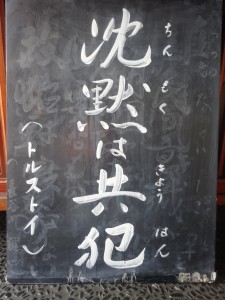 沈黙は共犯
ちんもく きょうはん
（トルストイ）